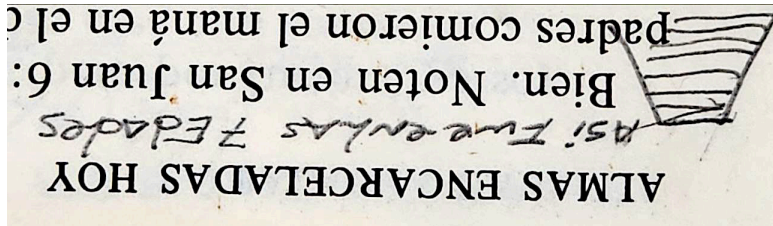 ALMAS ENCARCELADAS HOY
ASi FUE en LAS 7 EdAdes
Bien. Noten en San Juan 6:
padres comieron el maná en el